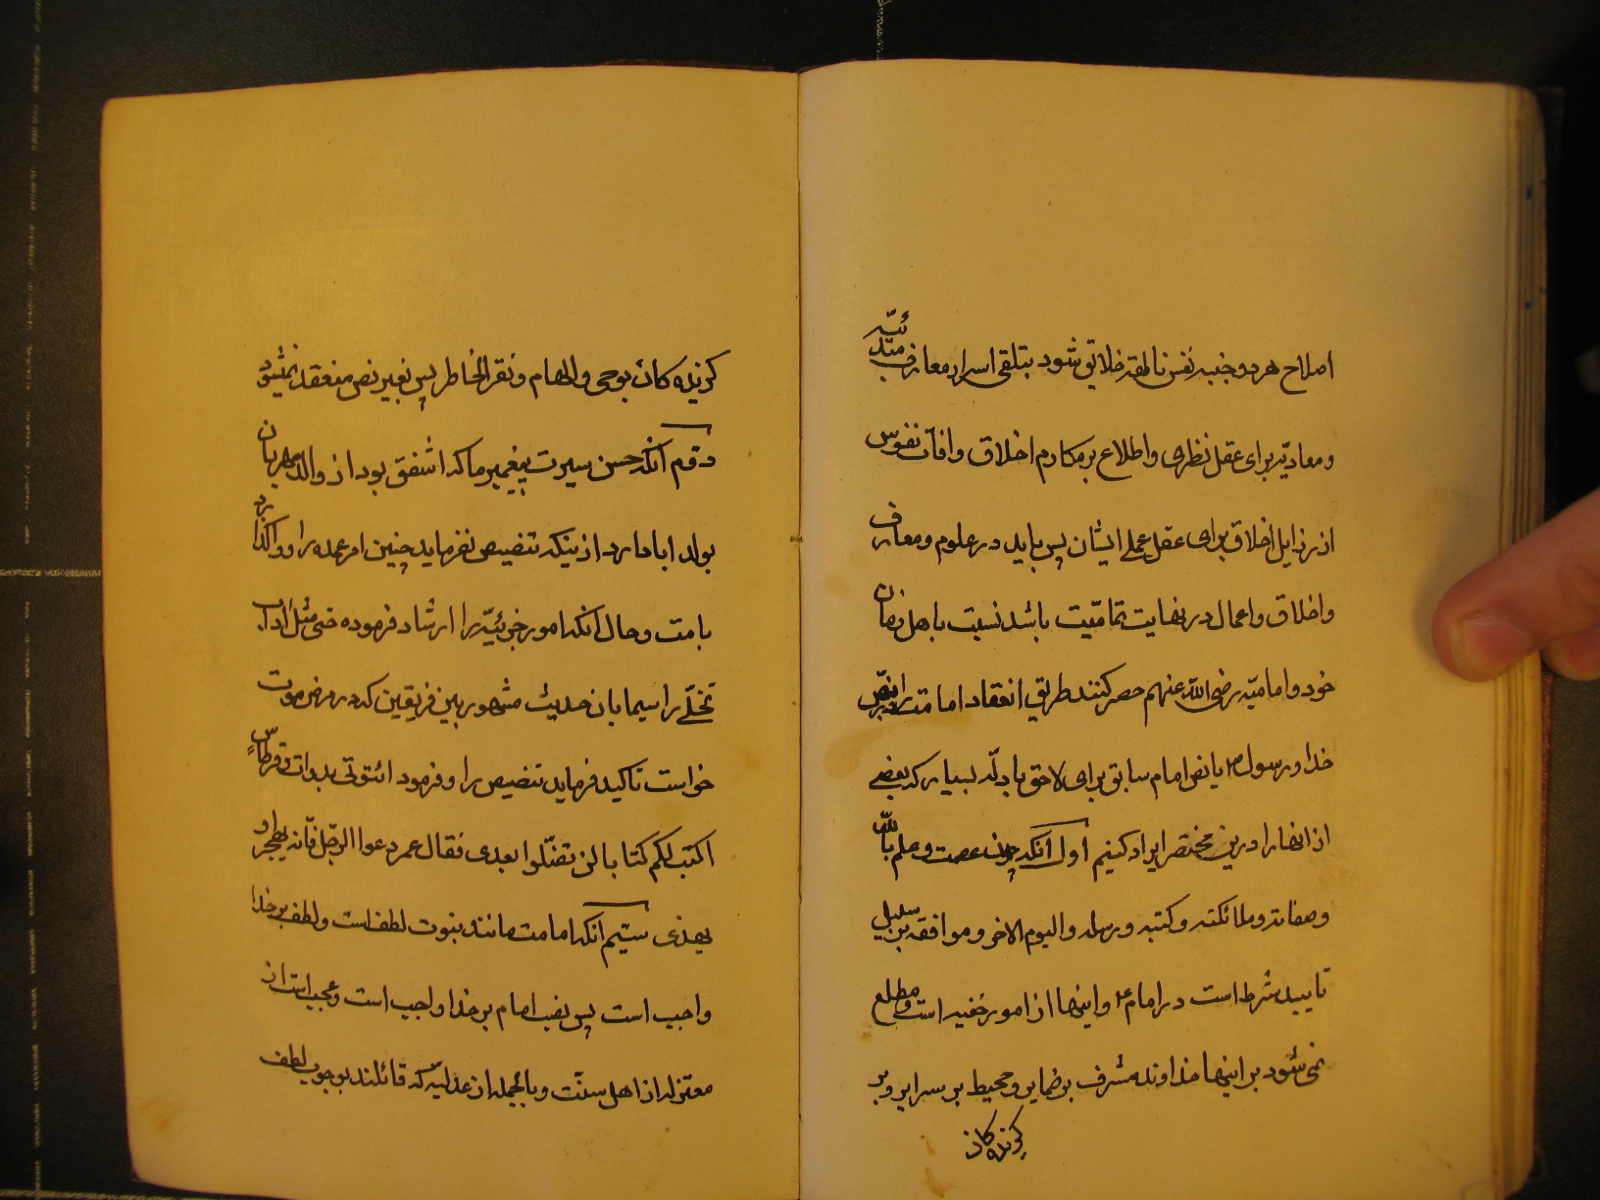 اصلاح هر دو جنبه نفس ناطقه خلایق شود بتلقی اسرار معارف مبدئیّه
و معادیّه برای عقل نظری و اطلاع بر مکارم اخلاق و افات نفوس
از رذایل اخلاق برای عقل عملے ایشان پس باید در علوم و معارف
و اخلاق و اعمال در نهایت تمامیت باشد نسبت باهل زمان
خود و امامیّه رضی اللّه عنهم حصر کنند طریق انعقاد امامت را در نصّ
خدا و رسول ص یا نص امام سابق برای لاحق بادلّه بسیار که بعضے
از انها را درین مختصر ایراد کنیم اول آنکه چون عصمت و علم باللّه
و صفاته و ملائکته و کتبه و رسله و الیوم الاخر و موافقه بر سبیل
تایید شرط است در امام ع و اینها از امور خفیه است و مطلع
نمی شود بر اینها خداونده مشرف بر ضمایر و محیط بر سرایر و بر
کزیده کان
کزیده کان بوحی و الهام و نقر الخاطر پس بغیر نص منعقد نمیشود
دوّم آنکه حسن سیرت پیغمبر ما که اشفق بود از والد مهربان
بولد ابا دارد ازینکه تنصیص نفرماید چنین امر عمده را و واکذارد
بامت و حال انکه امور جزئیّه را ارشاد فرموده حتی مثل آداب
تخلّے را سیما بان حدیث مشهور بین فریقین که در مرض موت
خواست تاکید فرماید تنصیص را و فرمود ائتونی بدوات و قرطاسٍ
اکتب لکم کتابا لن تضلّوا بعدی فقال عمر دعوا الرجل فانّه لیهجر او
یهذی سیّم آنکه امامت مانند نبوت لطف است و لطف بر خدا
واجب است پس نصب امام بر خدا واجب است و عجب است از
معتزله از اهل سنّت و بالجمله از عدلیّه که قائلند بوجوب لطف